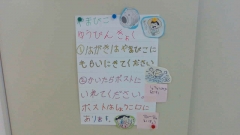 やまびこ
ゆうびんきょく
①はがきはやまびこに
もらいにきてください
②かいたらポストに
いれてください。
ポストはしょうこ口に
あります。